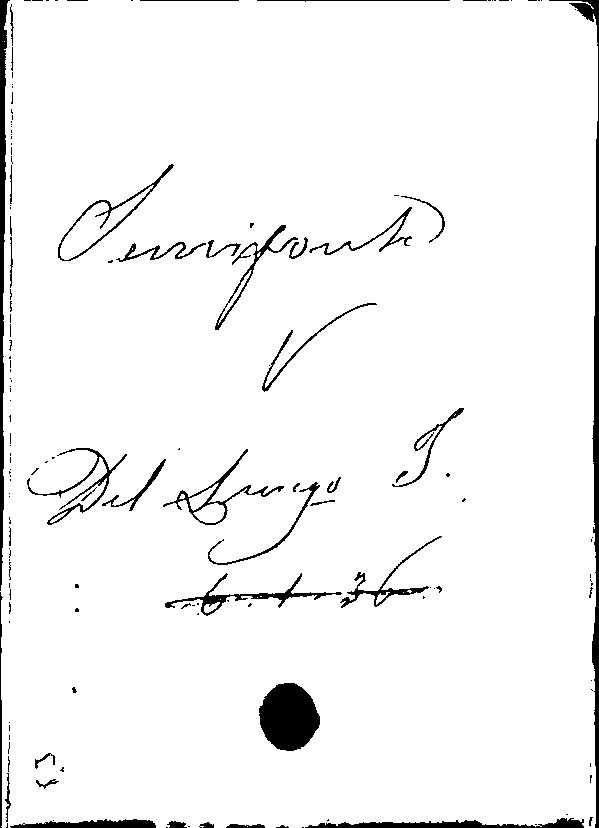 Semifonte
V
Del Lungo I.
6.1.36